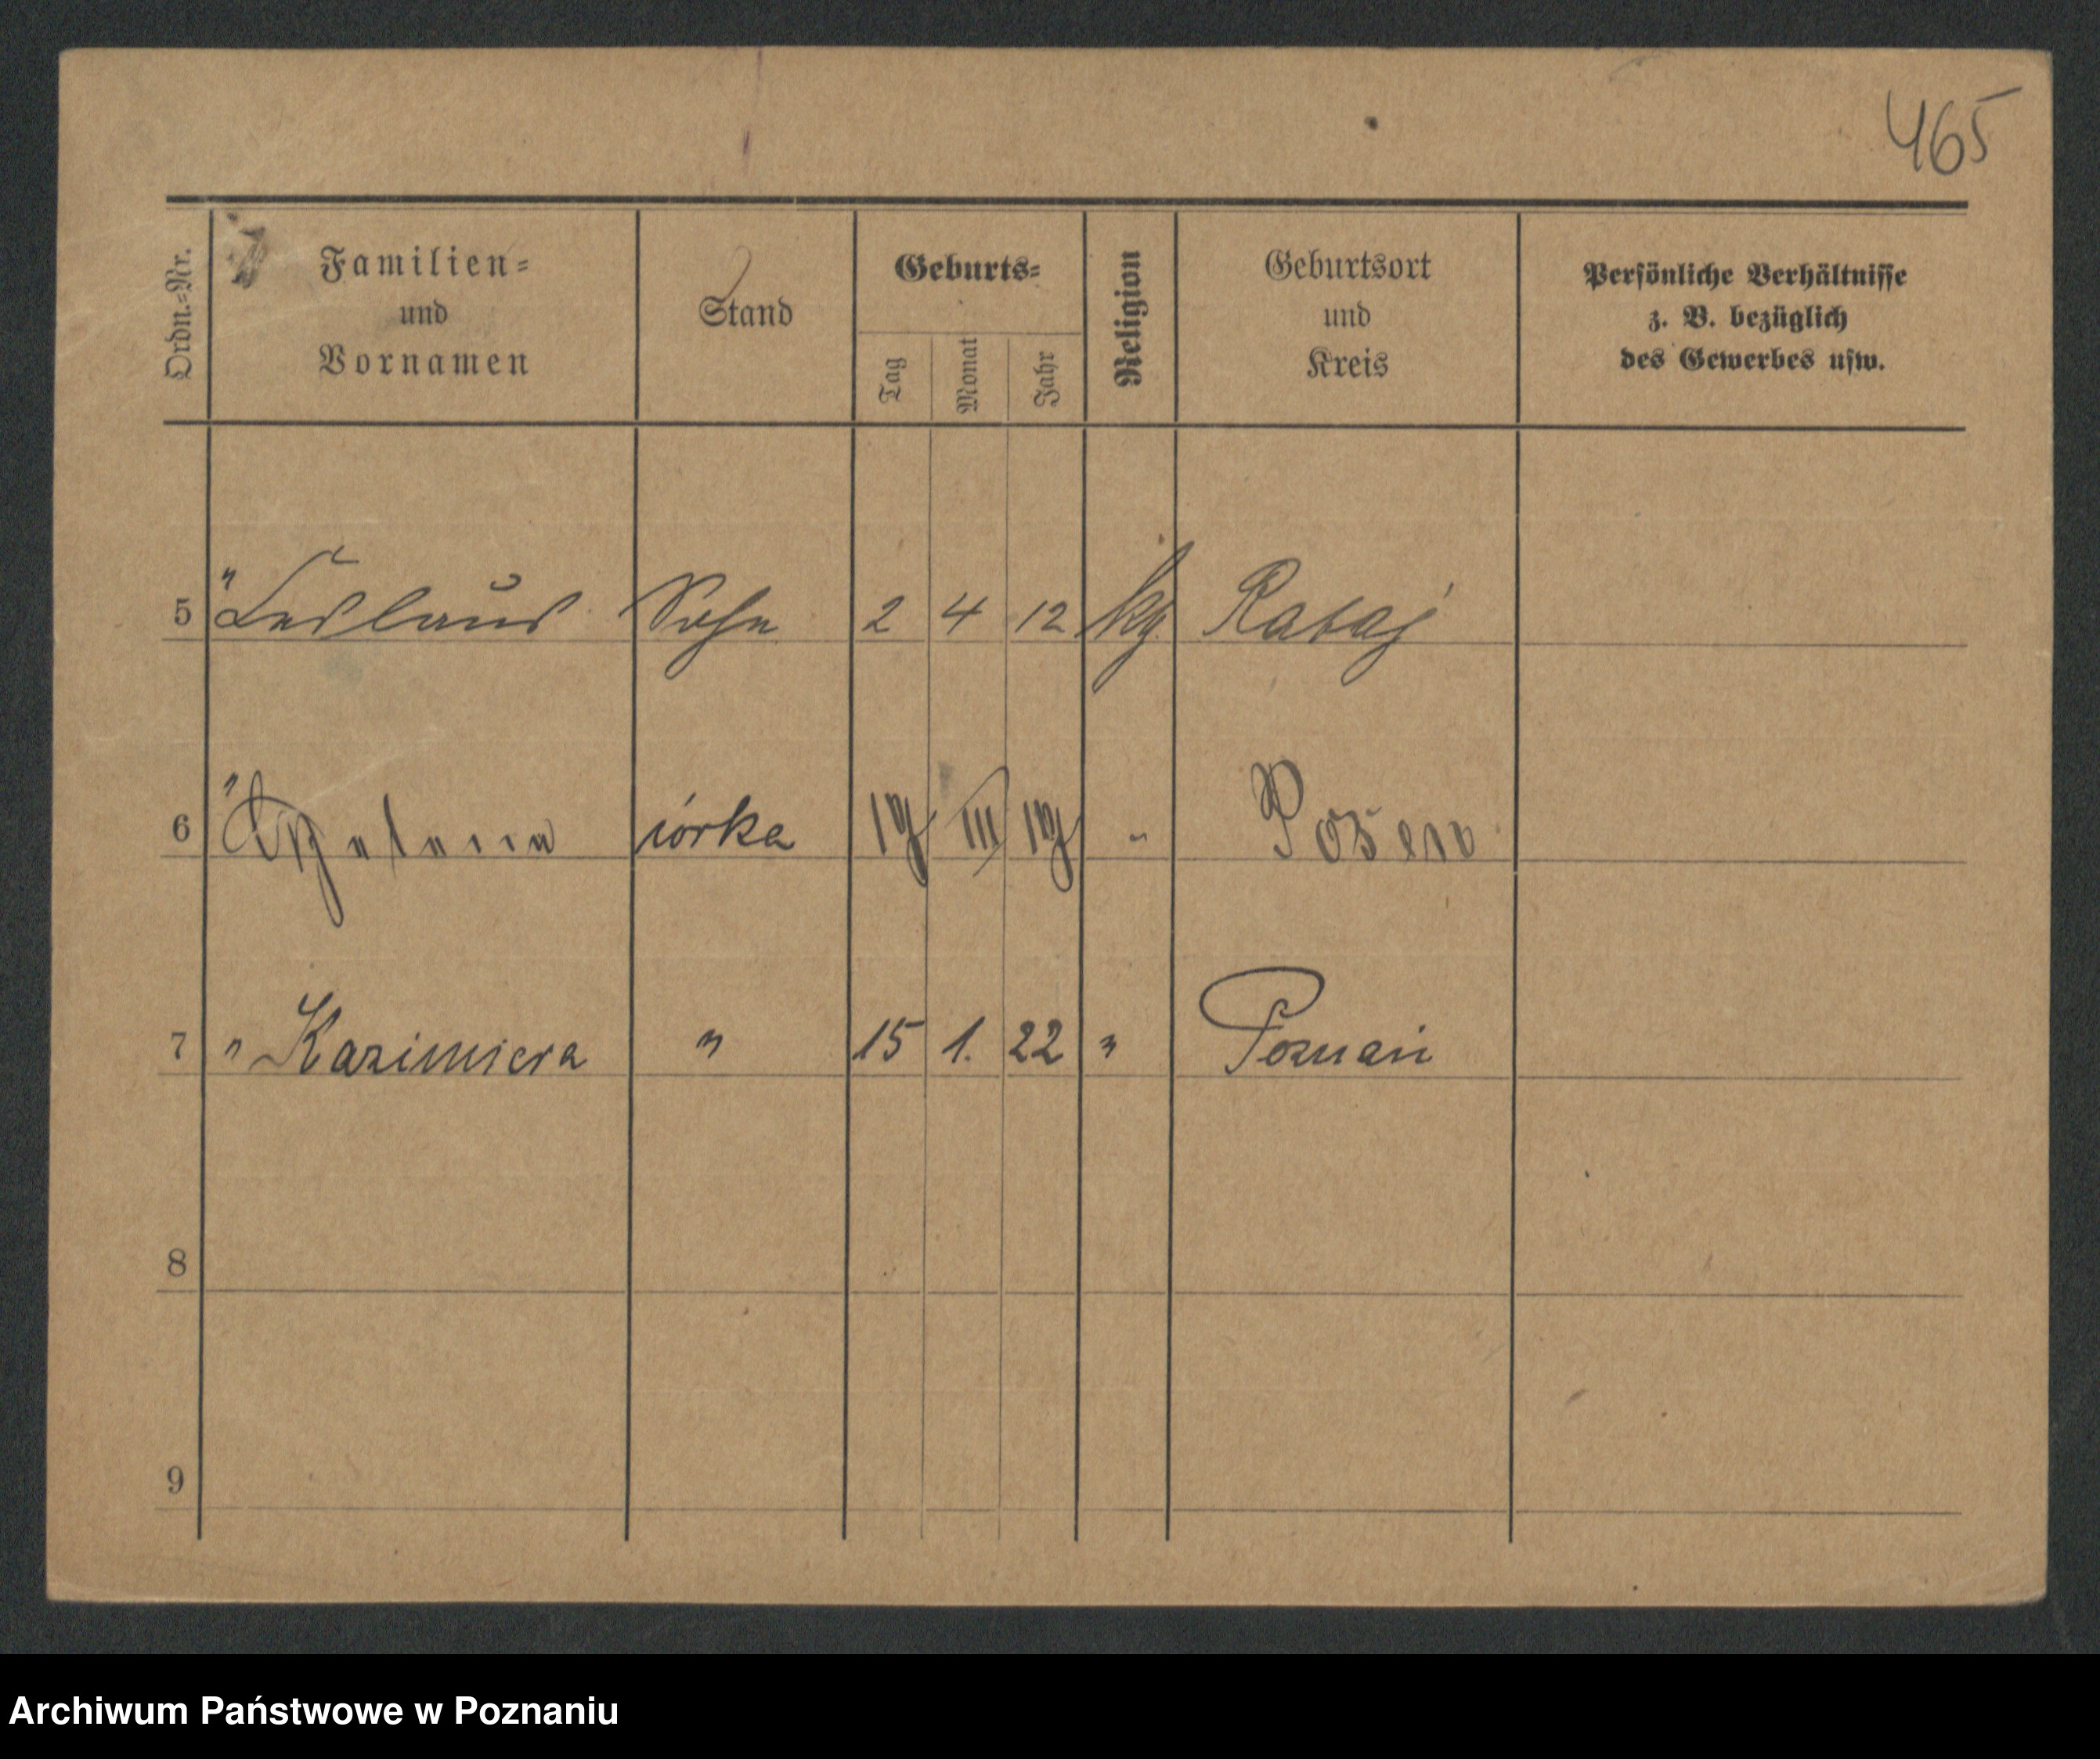 465
Ordn.=Nr.
Familien=
und
Vornamen
Stand
Geburts=
Tag
Monat
Jahr
Religion
Geburtsort
und
Kreis
Persönliche Verhältnisse
z. B. bezüglich
des Gewerbes usw.
5 " Ladislaus Sohn 2 4 12 kg. Rataj
6 " Helena córka 19 III 19 " Posen
7 " Kazimiera " 15 1. 22 " Poznań
8
9
Archiwum Państwowe w Poznaniu